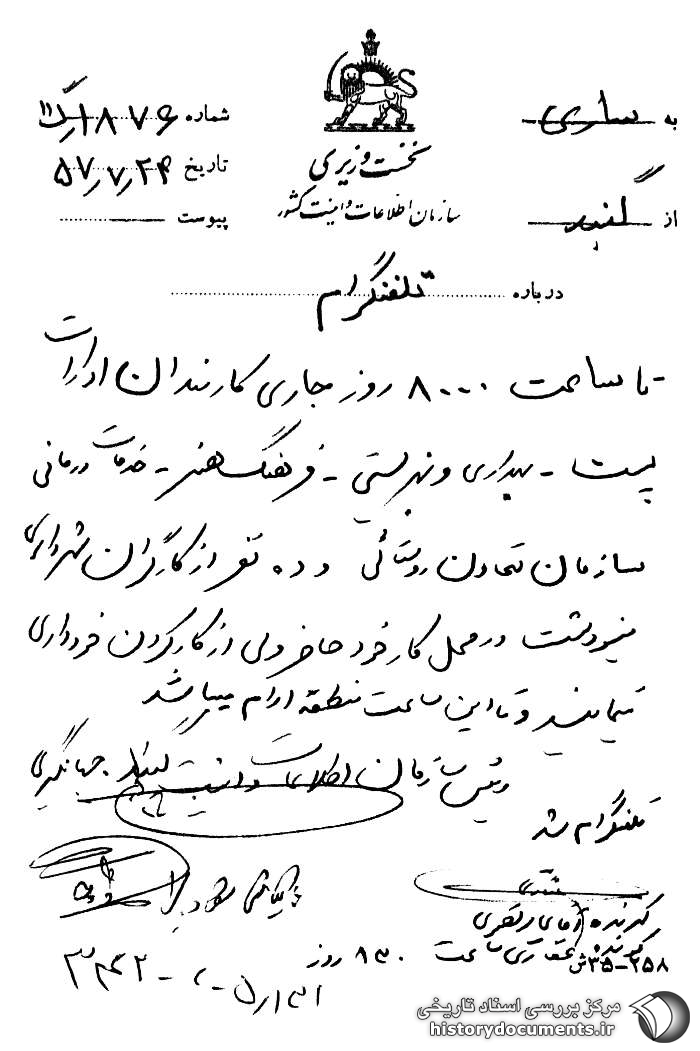 به ساری
از گنبد
نخست وزیری
سازمان اطلاعات و امنیت کشور
شماره ۱۸۷۶
تاریخ ۵۷٫۷٫۲۴
پیوست
درباره تلفنگرام
- تا ساعت ۸۰۰۰ روز جاری کارمندان ادارات
پست - بهداری و بهزیستی - فرهنگ هنر - خدمات درمانی
سازمان تعاون روستائی و ده نفر از کارگران شهرداری
مینودشت در محل کار خود حاضر ولی از کار کردن خودداری
مینمایند و تا این ساعت منطقه آرام میباشد
رئیس سازمان اطلاعات و امنیت گنبد. جهانگیری
تلفنگرام شد
گیرنده آقای
گوینده ساعت ۸۳۰ روز
۳۵-۲۵۸ش
مرکز بررسی اسناد تاریخی
historydocuments.ir